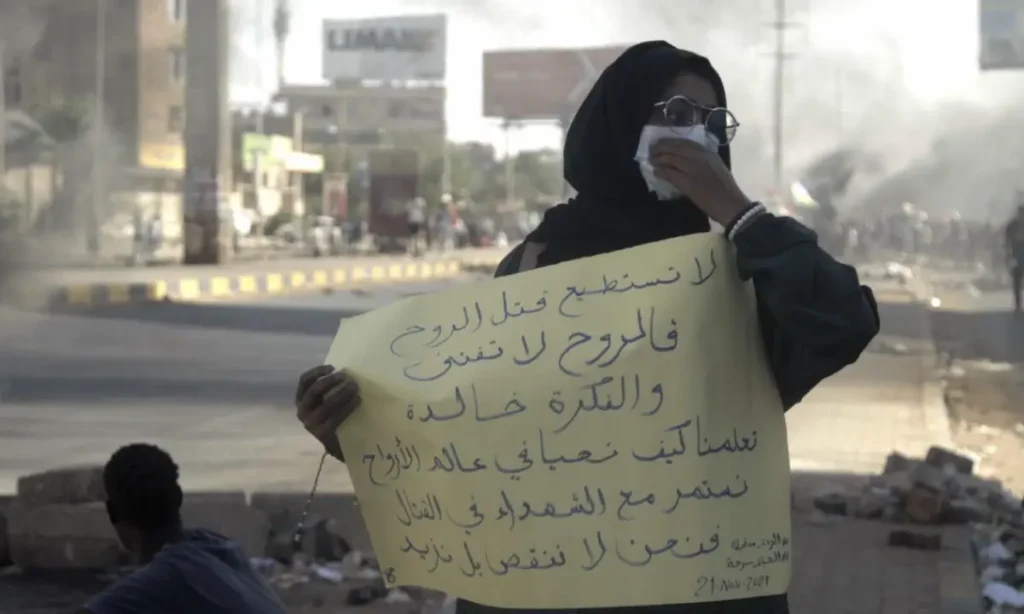 LIMAR
لا تستطيع قتل الروح
فالروح لا تفنى
والفكرة خالدة
تعلمنا كيف نحيا في عالم الأرواح
نستمر مع الشهداء في القتال
فنحن لا ننقص بل نزيد
21-Nov-2021